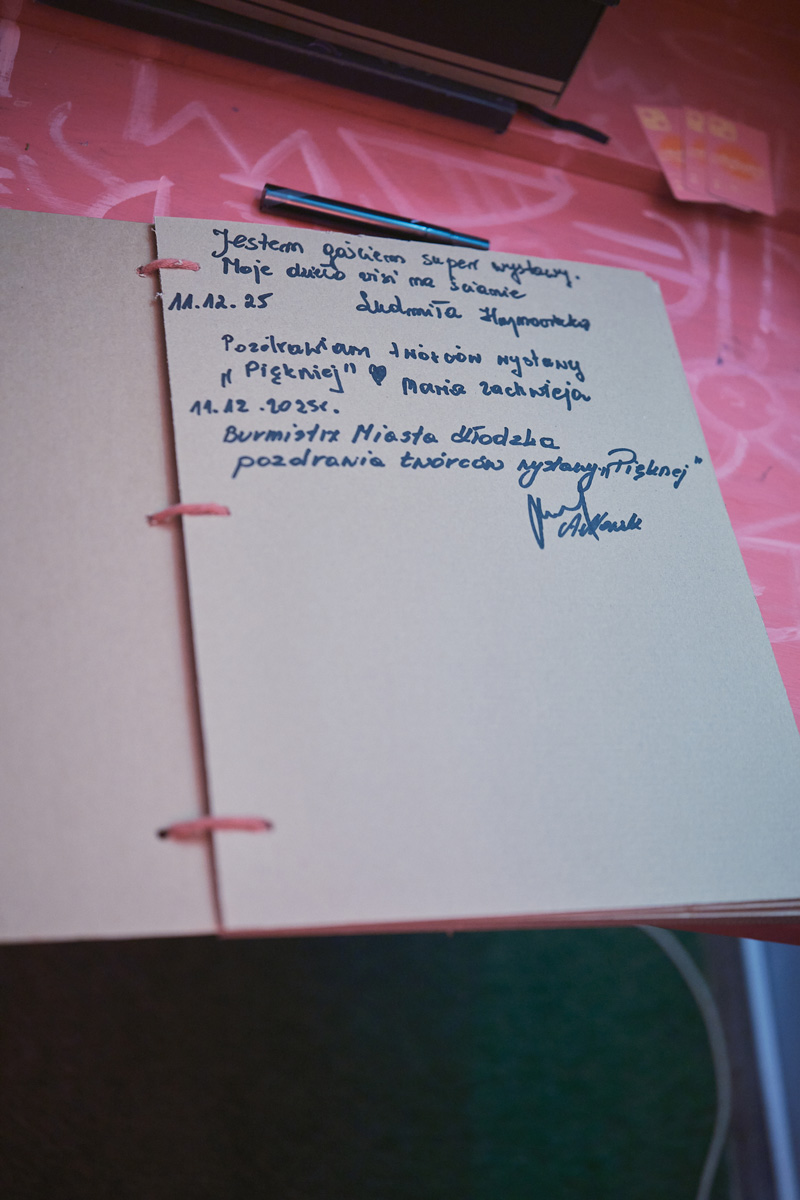 Jestem gościem super wystawy.
Moje dzieło wisi na ścianie
11.12.25 Ludmiła
Pozdrawiam twórców wystawy
„Piękniej" ♥ Maria Zachwieja
11.12.2025r.
Burmistrz Miasta Kłodzka
pozdrawia twórców wystawy „Piękniej"